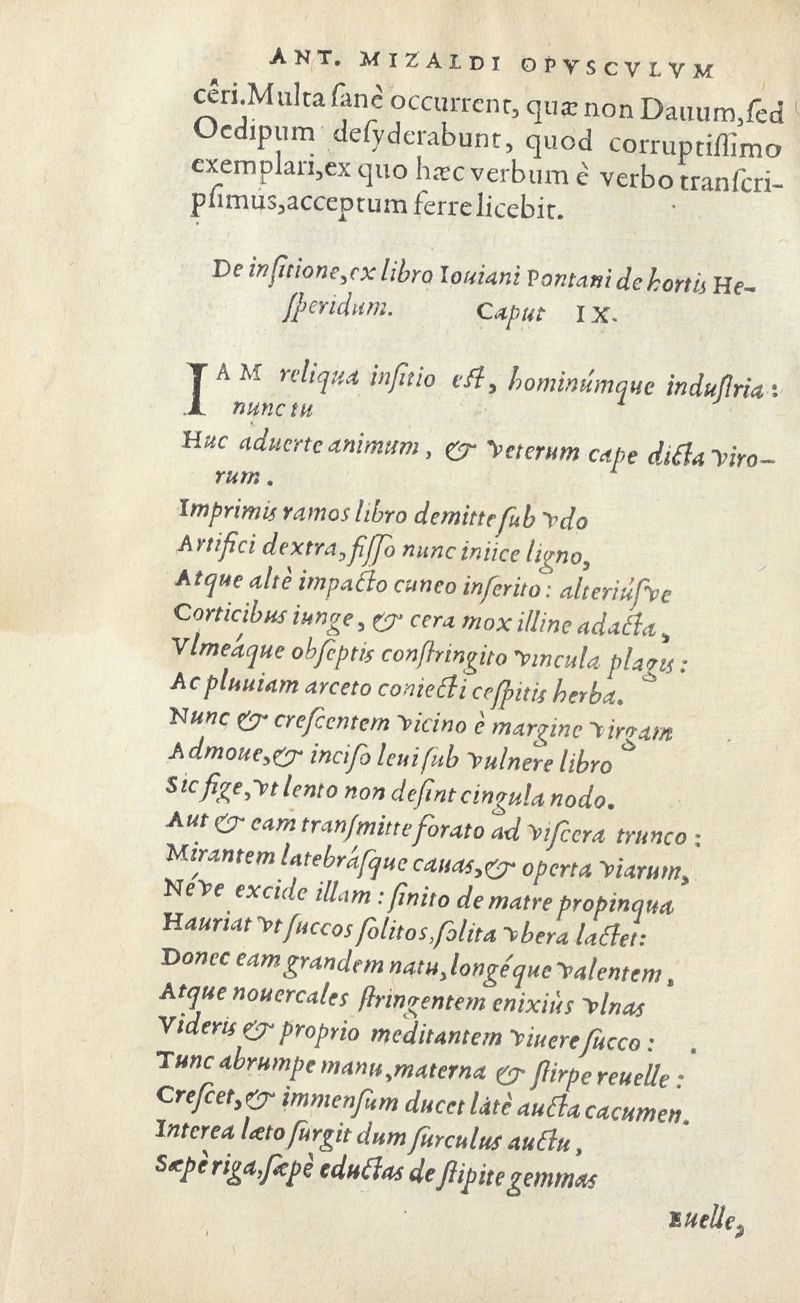 ANT. MIZALDI OPVSCVLVM
cêri. Multa ſanè occurrent, quæ non Dauum, ſed
Oedipum deſyderabunt, quod corruptiſſimo
exemplari, ex quo hæc verbum è verbo tranſcri-
pſimus, acceptum ferre licebit.
De inſitione, ex libro Iouiani Pontani de hortis He-
ſperidum. Caput IX.
IAM reliqua inſitio eſt, hominúmque induſtria:
nunc tu
Huc aduerte animum, & veterum cape dicta viro-
rum.
Imprimis ramos libro demitte ſub vdo
Artifici dextra, fiſſo nunc iniice ligno,
Atque altè impacto cuneo inſerito: alteriúſve
Corticibus iunge, & cera mox illine adacta,
Vlmeáque obſeptis conſtringito vincula plagis:
Ac pluuiam arceto coniecti ceſpitis herba.
Nunc & creſcentem vicino è margine virgam
Admoue, & inciſo leui ſub vulnere libro
Sic fige, vt lento non deſint cingula nodo.
Aut & eam tranſmitte forato ad viſcera trunco:
Mirantem latebráſque cauas, & operta viarum,
Néve excide illam: ſinito de matre propinqua
Hauriat vt ſuccos ſolitos, ſolita vbera lactet:
Donec eam grandem natu, longéque valentem,
Atque nouercales ſtringentem enixiùs vlnas
Videris & proprio meditantem viuere ſucco:
Tunc abrumpe manu, materna & ſtirpe reuelle:
Creſcet, & immenſum ducet látè aucta cacumen.
Interea læto ſurgit dum ſurculus auctu,
Sæpè riga, ſæpè eductas de ſtipite gemmas
Euelle,